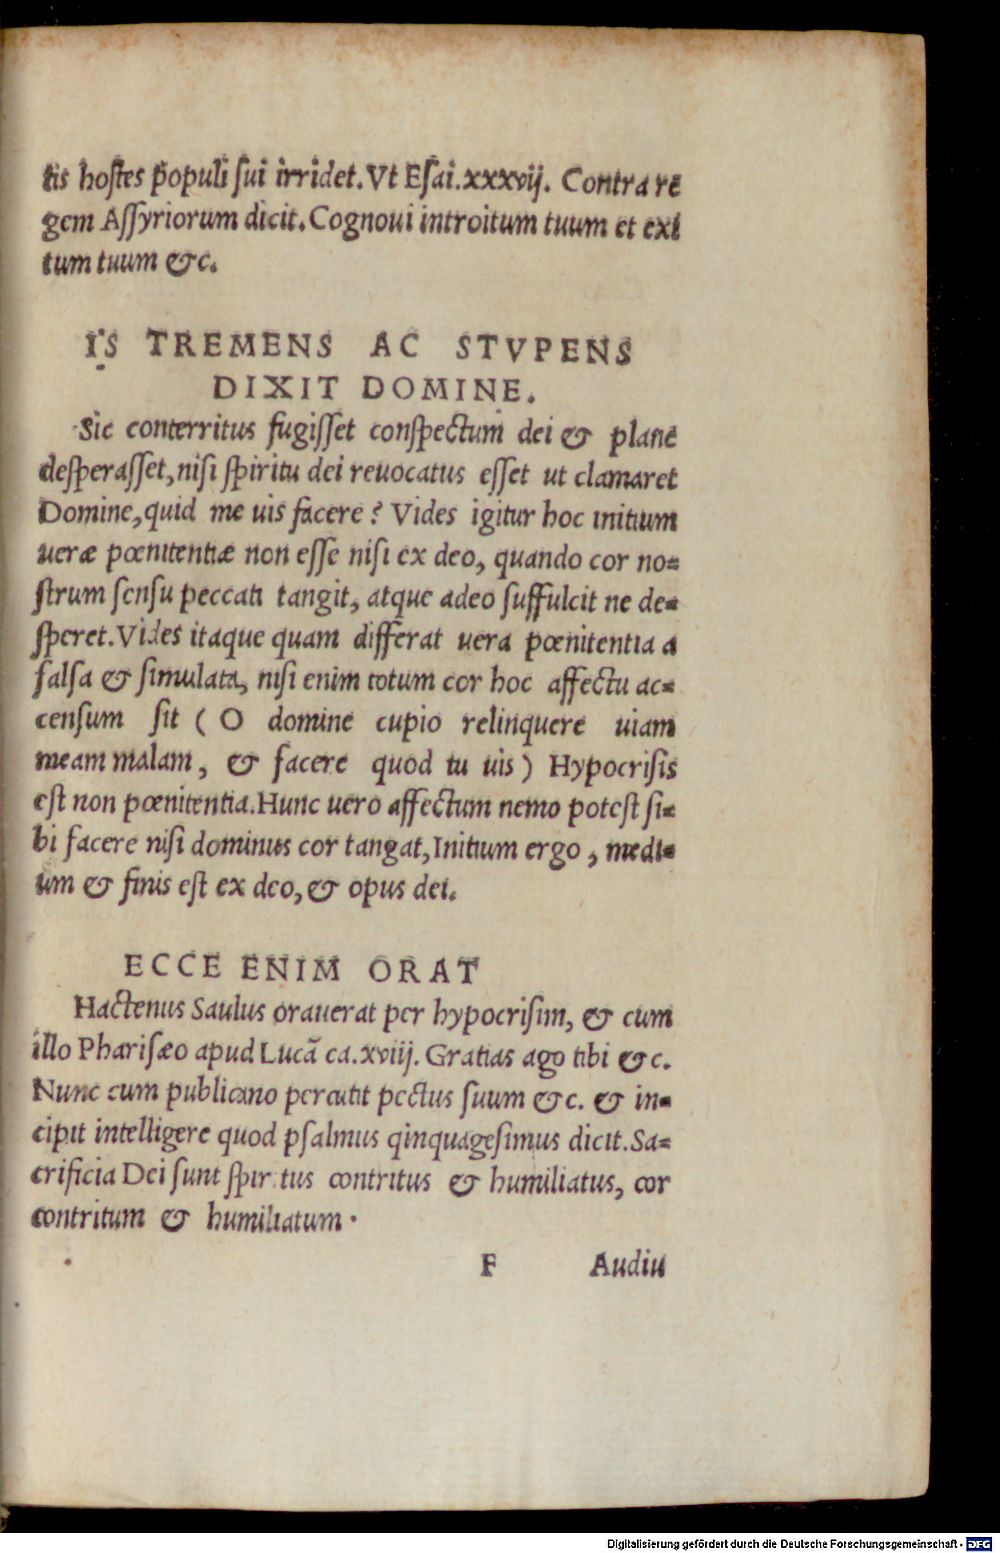 tis hostes populi sui irridet. Vt Esai. xxxvij. Contra re
gem Assyriorum dicit. Cognoui introitum tuum et exi
tum tuum &c.
IS TREMENS AC STVPENS
DIXIT DOMINE.
Sic conterritus fugisset conspectum dei & plane
desperasset, nisi spiritu dei reuocatus esset ut clamaret
Domine, quid me uis facere? Vides igitur hoc initium
ueræ pœnitentiæ non esse nisi ex deo, quando cor no=
strum sensu peccati tangit, atque adeo suffulcit ne de=
speret. Vides itaque quam differat uera pœnitentia a
falsa & simulata, nisi enim totum cor hoc affectu ac=
censum sit ( O domine cupio relinquere uiam
meam malam, & facere quod tu uis ) Hypocrisis
est non pœnitentia. Hunc uero affectum nemo potest si=
bi facere nisi dominus cor tangat, Initium ergo, medi=
um & finis est ex deo, & opus dei.
ECCE ENIM ORAT
Hactenus Saulus orauerat per hypocrisim, & cum
illo Pharisæo apud Lucã ca. xviij. Gratias ago tibi &c.
Nunc cum publicano percutit pectus suum &c. & in=
cipit intelligere quod psalmus qinquagesimus dicit. Sa=
crificia Dei sunt spiritus contritus & humiliatus, cor
contritum & humiliatum.
F Audiu
Digitalisierung gefördert durch die Deutsche Forschungsgemeinschaft - DFG